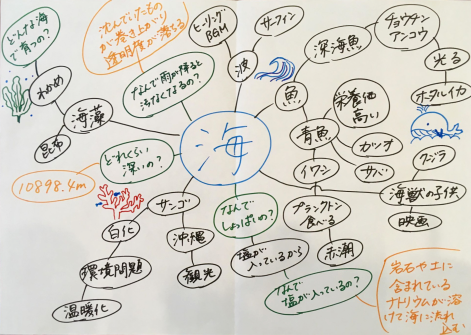 海
どんな海
で育つの？
わかめ
海藻
昆布
沈んでいたもの
が巻き上がり
透明度が落ちる
なんで雨が降ると
汚なくなるの？
ヒーリング
BGM
波
サーフィン
魚
深海魚
チョウチン
アンコウ
光る
ホタルイカ
青魚
栄養価
高い
カツオ
サバ
イワシ
プランクトン
食べる
赤潮
クジラ
海獣の子供
映画
どれくらい
深いの？
10898.4m
サンゴ
白化
環境問題
温暖化
沖縄
観光
なんで
しょっぱいの？
塩が
入っているから
なんで
塩が入っているの？
岩石や土に
含まれている
ナトリウムが溶
けて海に流れ
込む